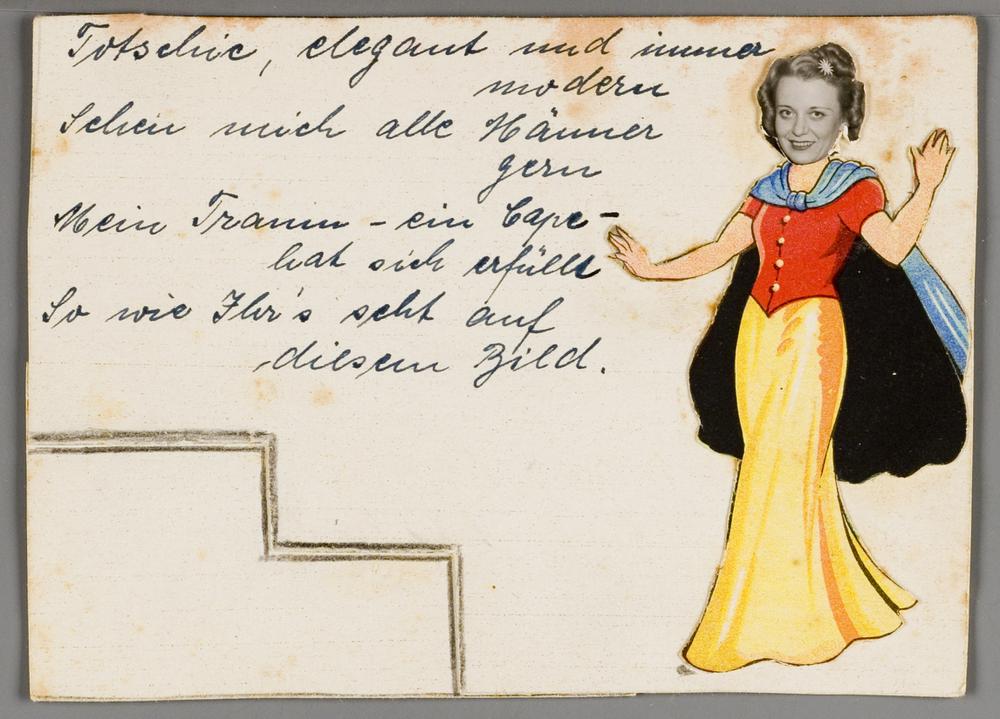 Totschic, elegant und immer
modern
Sehen mich alle Männer
gern
Mein Traum - ein Cape -
hat sich erfüllt
So wie Ihr's seht auf
diesem Bild.